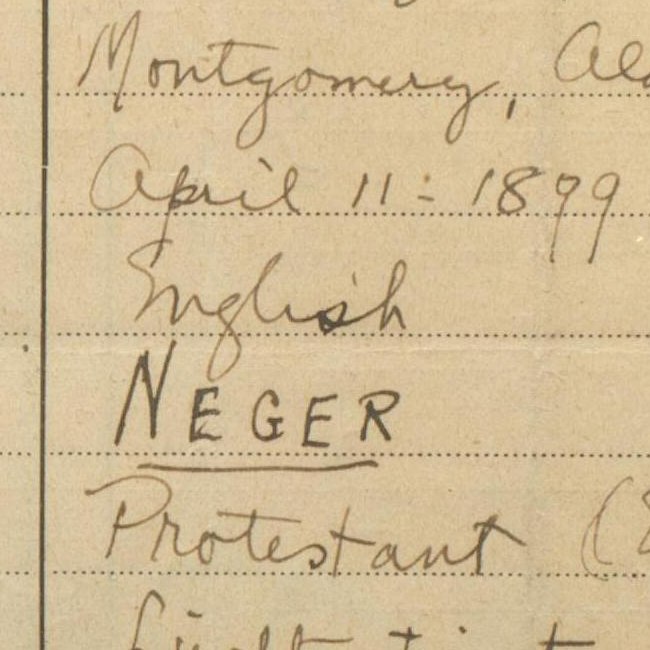 Montgomery, Ala
April 11 - 1899
English
NEGER
Protestant (